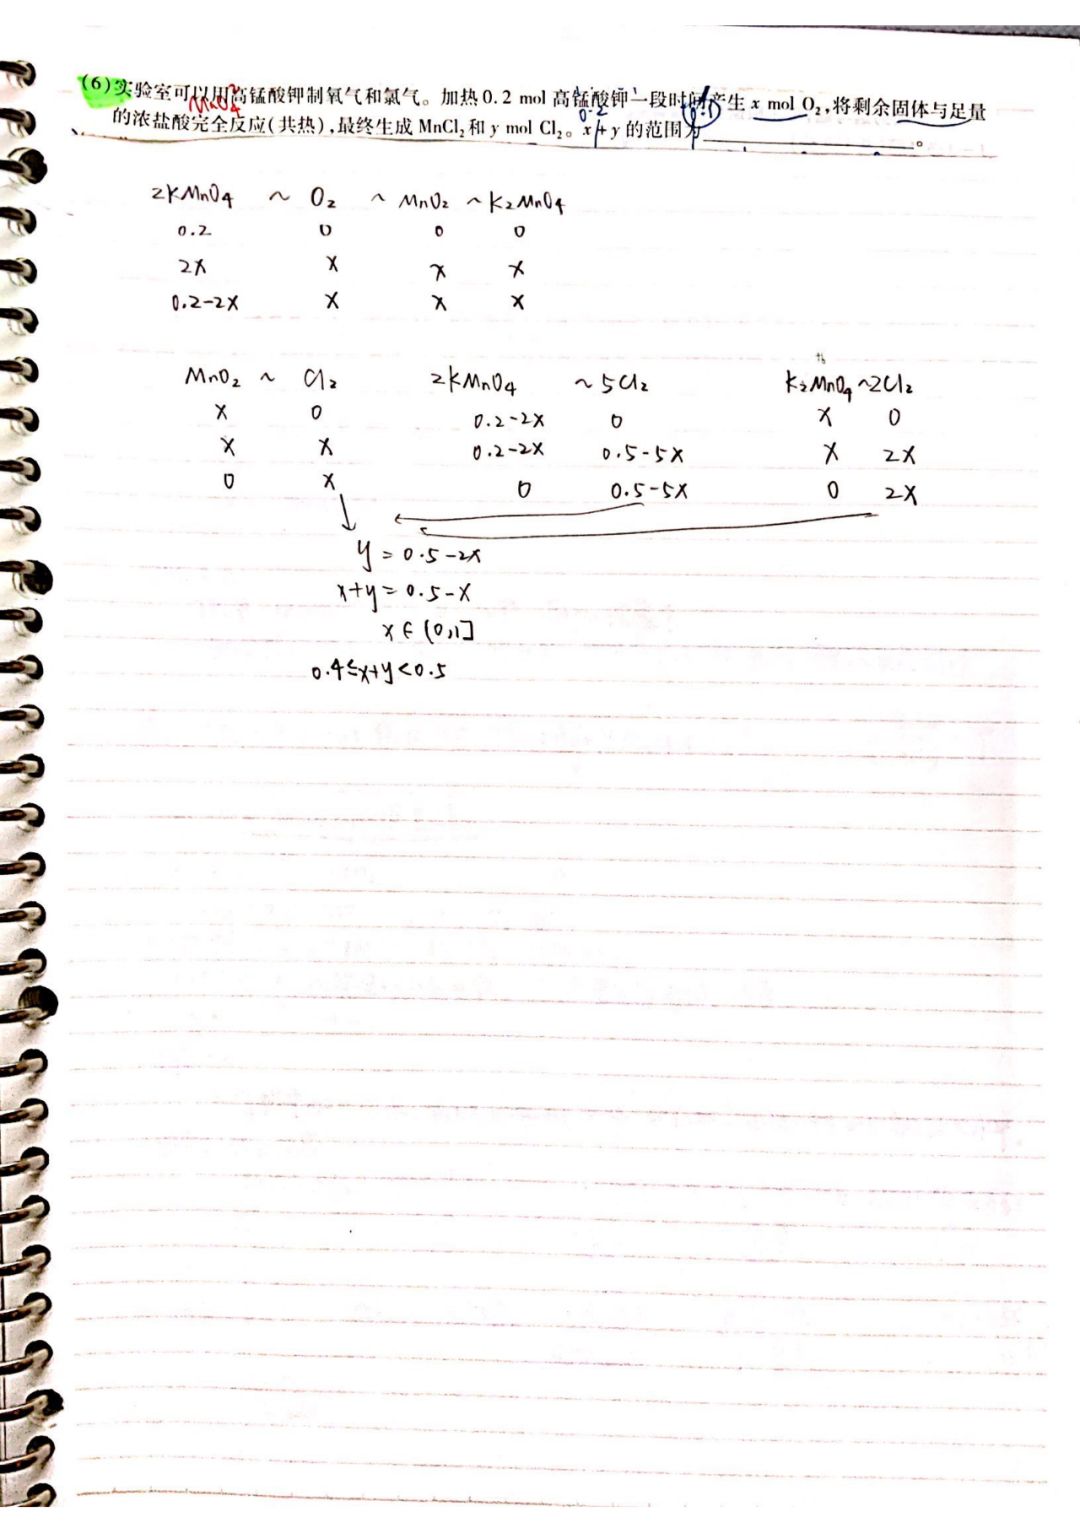 (6)实验室可以用高锰酸钾制氧气和氯气。加热0.2 mol 高锰酸钾一段时间产生 x mol O₂,将剩余固体与足量
的浓盐酸完全反应(共热),最终生成 MnCl₂ 和 y mol Cl₂。x+y 的范围为____________。
2KMnO4 ~ O2 ~ MnO2 ~ K2MnO4
0.2 0 0 0
2x x x x
0.2-2x x x x
MnO2 ~ Cl2 2KMnO4 ~5Cl2 K2MnO4 ~2Cl2
x 0 0.2-2x 0 x 0
x x 0.2-2x 0.5-5x x 2x
0 x 0 0.5-5x 0 2x
y=0.5-2x
x+y=0.5-x
x∈(0,1]
0.4≤x+y<0.5